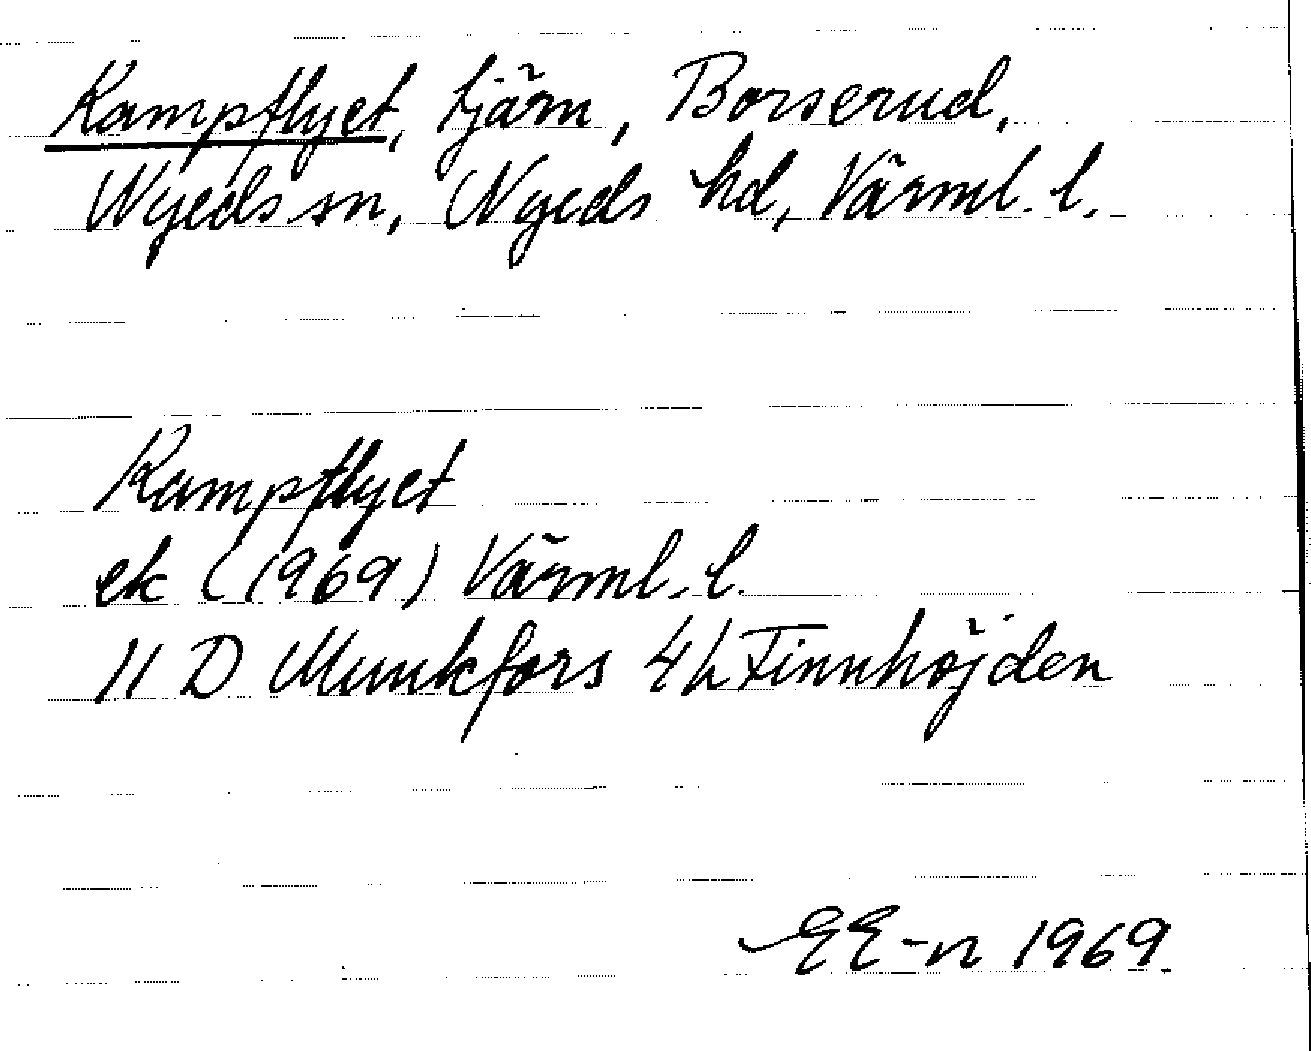 Kampflyet, tjärn, Borserud,
Nyeds sn, Nyeds hd, Värml. l.
Kampflyet
ek (1969) Värml. l.
11 D Munkfors 4 h Finnhöjden
EE-n 1969